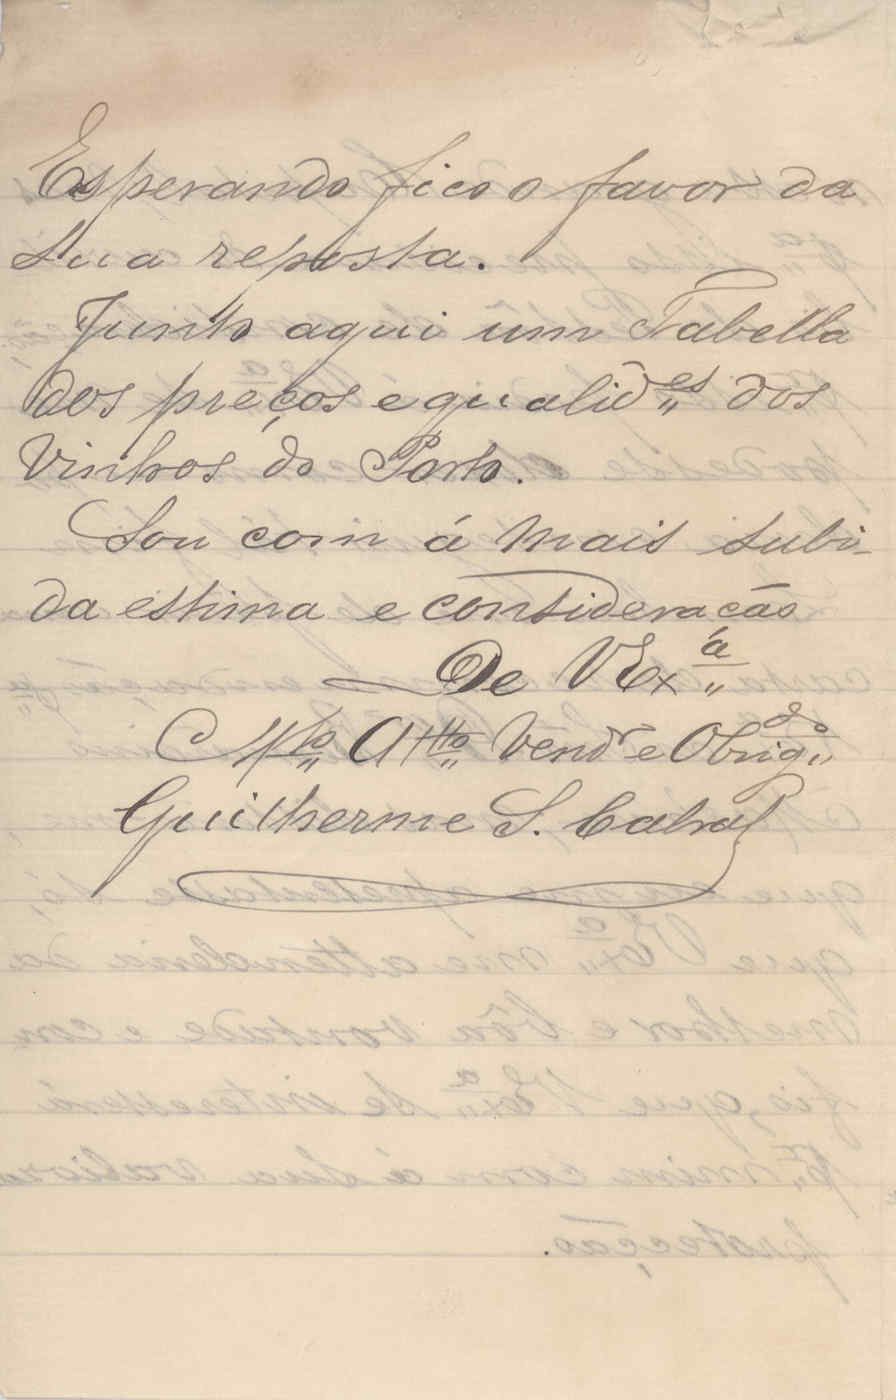 Esperando fico o favor da
sua reposta.
Junto aqui um Tabella
dos preços e qualid.es dos
Vinhos do Porto.
Sou com á mais subi-
da estima e consideracão
De V Ex.á
M.to Atto Vendr e Obrig.do
Guilherme S. Cabral